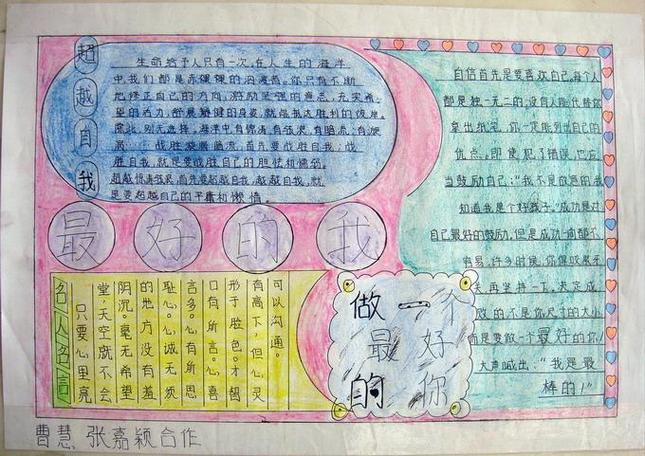 超越自我
生命给予人只有一次,在人生的海洋
中,我们都是赤裸裸的泅渡者。你只有不断
地修正自己的方向,激励坚强的意志,充实希
望的活力,舒展矫健的身姿,就能抵达胜利的彼岸。
除此,别无选择。海洋中有惊涛,有骇浪,有暗流,有漩
涡……战胜漩涡暗流,首先要战胜自我;战
胜自我,就是要战胜自己的胆怯和懦弱。
超越惊涛骇浪,首先要超越自我,超越自我,就
是要超越自己的平庸和懒惰。
自信首先是要喜欢自己,每个人
都是独一无二的,没有人能代替你
拿出纸笔,你一定能列出自己的
优点。即使犯了错误,也应
当鼓励自己:“我不是故意的我
知道我是个好孩子。”成功是对
自己最好的鼓励,但是成功一向都不
容易,许多时候,你像
天再坚持一下。决定成
败的不是你尺寸的大小
而是要做一个最好的你!
大声喊出:“我是最
棒的!”
最好的我
做一个
最好
的你
名人名言
只要心里亮
堂,天空就不会
阴沉。毫无希望
的地方没有羞
耻心。心诚无须
言多。心有所思
口有所言。心喜
形于脸色。才智
有高下,但心灵
可以沟通。
曹慧 张嘉颖合作